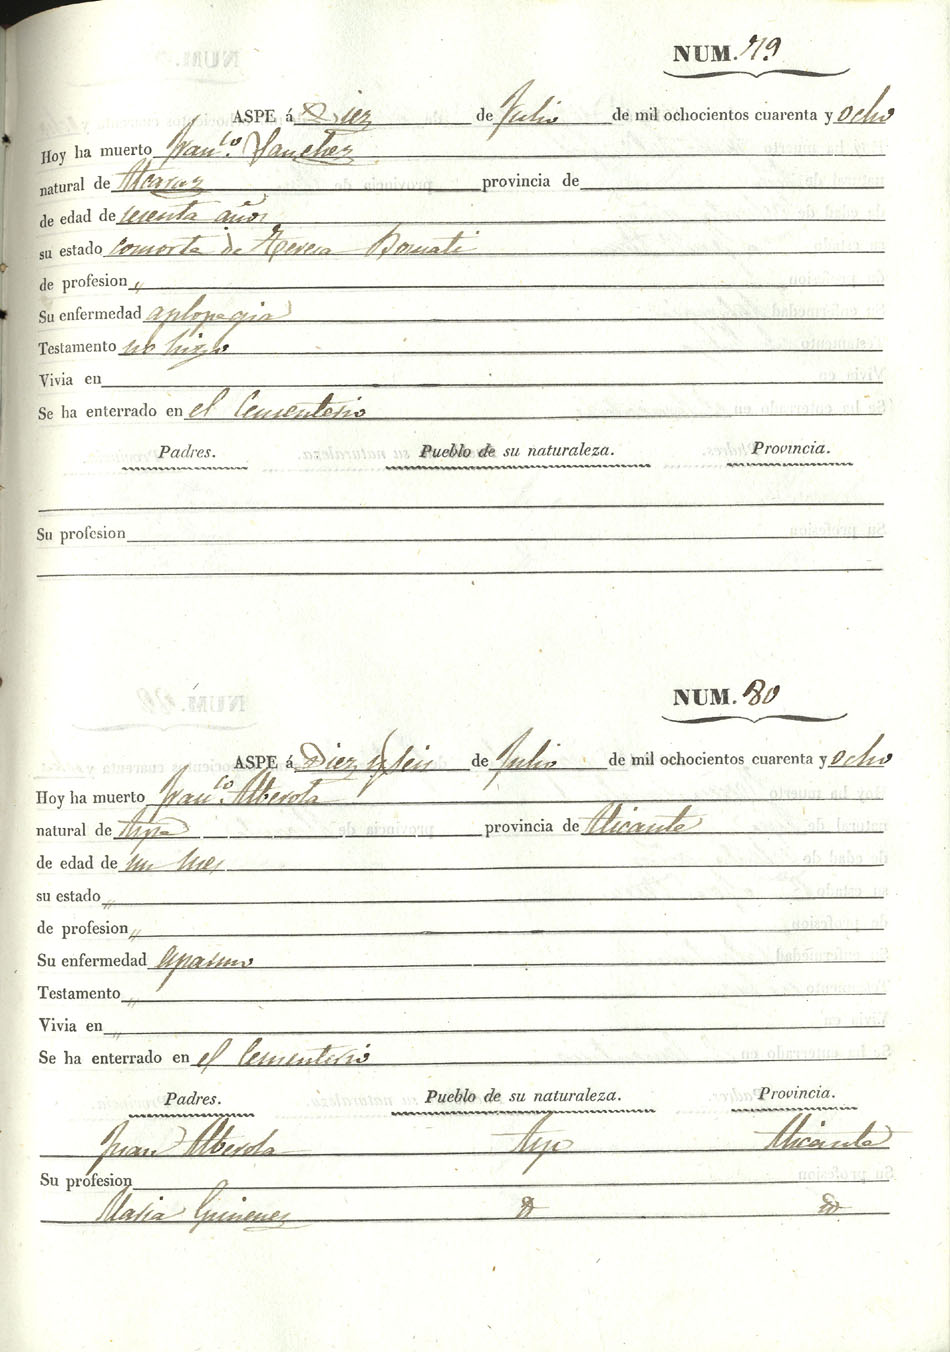 NUM. 79
ASPE á Diez de Julio de mil ochocientos cuarenta y ocho
Hoy ha muerto Fran.co Sanchez
natural de provincia de
de edad de sesenta años
su estado consorte de Teresa
de profesion "
Su enfermedad aplopegia
Testamento no hizo
Vivia en
Se ha enterrado en el Cementerio
Padres. Pueblo de su naturaleza. Provincia.
Su profesion
NUM. 80
ASPE á Diez y seis de Julio de mil ochocientos cuarenta y ocho
Hoy ha muerto Fran.co Alberola
natural de Aspe provincia de Alicante
de edad de un mes
su estado "
de profesion "
Su enfermedad espasmo
Testamento "
Vivia en "
Se ha enterrado en el Cementerio
Padres. Pueblo de su naturaleza. Provincia.
Juan Alberola Aspe Alicante
Su profesion
Maria Gimenez